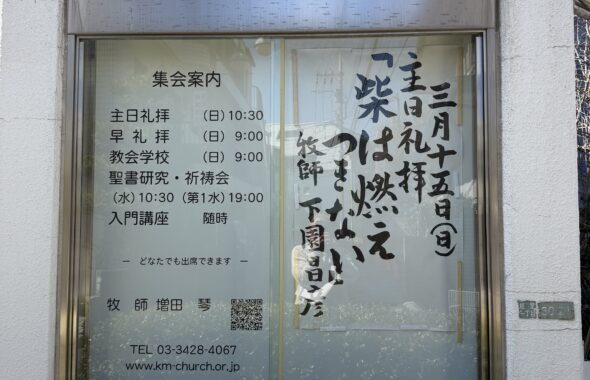 集会案内
主日礼拝 (日) 10:30
早礼拝 (日) 9:00
教会学校 (日) 9:00
聖書研究・祈祷会
(水) 10:30 (第1水) 19:00
入門講座 随時
― どなたでも出席できます ―
牧師 増田 琴
TEL 03-3428-4067
www.km-church.or.jp
三月十五日(日)
主日礼拝
「柴は燃え
つきない」
牧師 下園昌彦